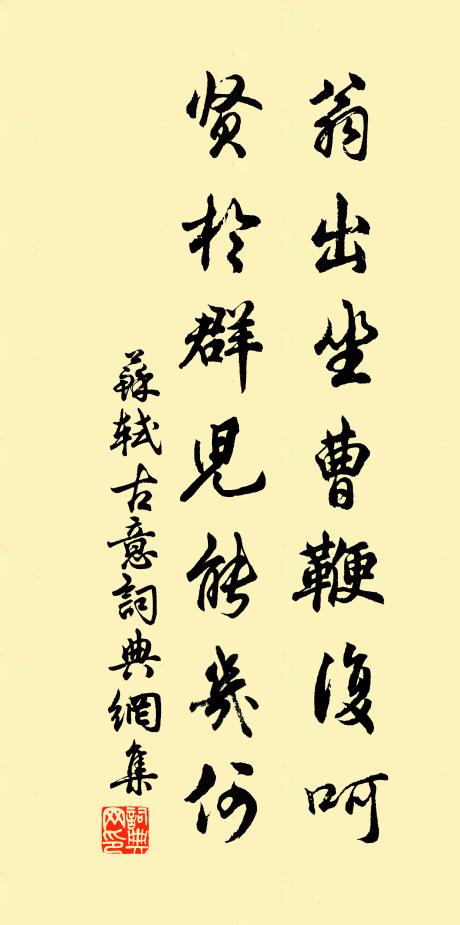 翁出坐曹鞭復呵
贤於群児能幾何
蘇軾古意詞典網集
詞典网印